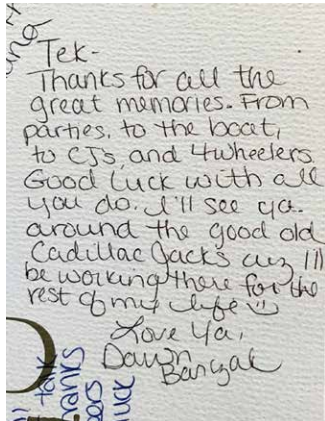 Tek-
Thanks for all the
great memories. From
parties, to the boat,
to CJ's, and 4wheelers.
Good luck with all
you do. I'll see ya
around the good old
Cadillac Jacks cuz I'll
be working there for the
rest of my life
Love Ya,
Dawn
talk
hanks
uck